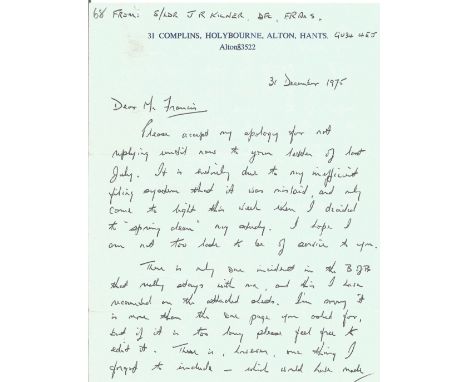 68 From: S/LDR J R KILNER, DFC, FRAeS.
31 COMPLINS, HOLYBOURNE, ALTON, HANTS. GU34 4EJ
Alton 83522
31 December 1975
Dear Mr Francis
Please accept my apology for not
replying until now to your letter of last
July. It is entirely due to my inefficient
filing system that it was mislaid, and only
come to light this week when I decided
to "spring clean" my study. I hope I
am not too late to be of service to you.
There is only one incident in the B of B
that really stays with me, and this I have
recounted on the attached sheets. I'm sorry it
is more than the one page you asked for,
but if it is too long please feel free to
edit it. There is, however, one thing I
forgot to include – which would have made